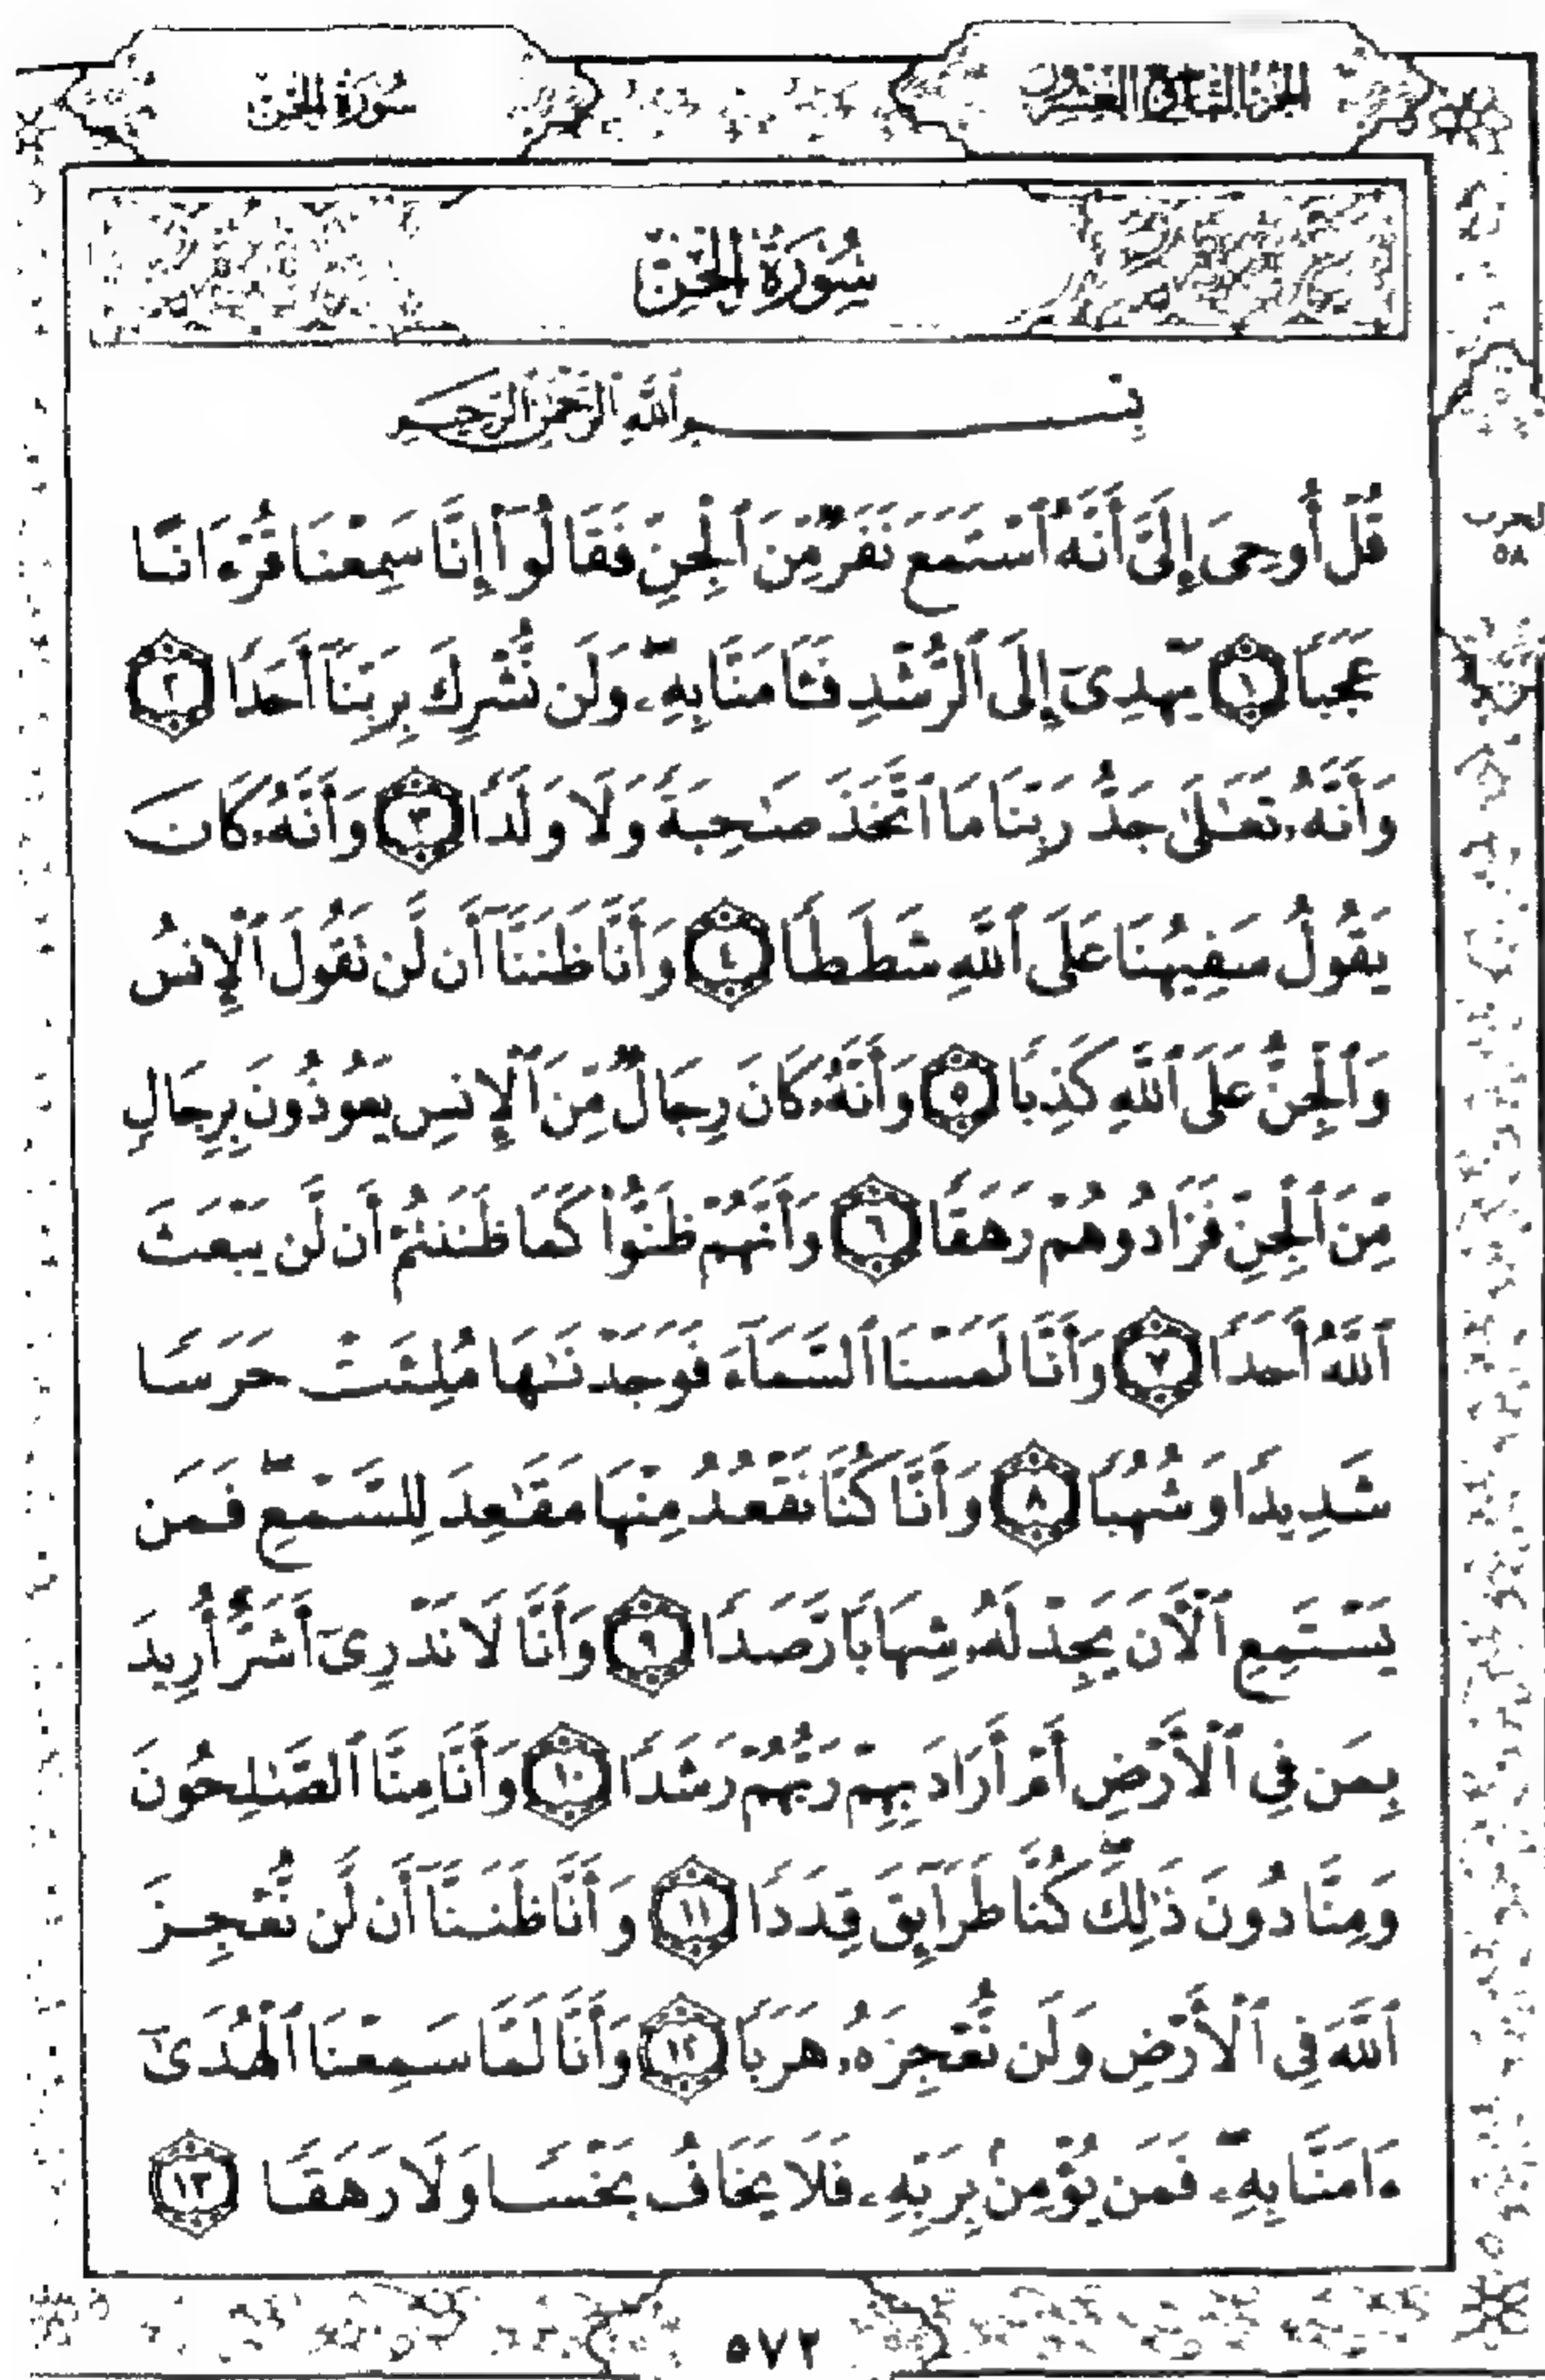 الجزء التاسع والعشرون
سورة الجن
سُورَةُ الجِنِّ
بِسْمِ ٱللَّهِ ٱلرَّحْمَٰنِ ٱلرَّحِيمِ
قُلْ أُوحِىَ إِلَىَّ أَنَّهُ ٱسْتَمَعَ نَفَرٌ مِّنَ ٱلْجِنِّ فَقَالُوٓا۟ إِنَّا سَمِعْنَا قُرْءَانًا
عَجَبًا ١ يَهْدِىٓ إِلَى ٱلرُّشْدِ فَـَٔامَنَّا بِهِۦ ۖ وَلَن نُّشْرِكَ بِرَبِّنَآ أَحَدًا ٢
وَأَنَّهُۥ تَعَٰلَىٰ جَدُّ رَبِّنَا مَا ٱتَّخَذَ صَٰحِبَةً وَلَا وَلَدًا ٣ وَأَنَّهُۥ كَانَ
يَقُولُ سَفِيهُنَا عَلَى ٱللَّهِ شَطَطًا ٤ وَأَنَّا ظَنَنَّآ أَن لَّن تَقُولَ ٱلْإِنسُ
وَٱلْجِنُّ عَلَى ٱللَّهِ كَذِبًا ٥ وَأَنَّهُۥ كَانَ رِجَالٌ مِّنَ ٱلْإِنسِ يَعُوذُونَ بِرِجَالٍ
مِّنَ ٱلْجِنِّ فَزَادُوهُمْ رَهَقًا ٦ وَأَنَّهُمْ ظَنُّوا۟ كَمَا ظَنَنتُمْ أَن لَّن يَبْعَثَ
ٱللَّهُ أَحَدًا ٧ وَأَنَّا لَمَسْنَا ٱلسَّمَآءَ فَوَجَدْنَٰهَا مُلِئَتْ حَرَسًا
شَدِيدًا وَشُهُبًا ٨ وَأَنَّا كُنَّا نَقْعُدُ مِنْهَا مَقَٰعِدَ لِلسَّمْعِ ۖ فَمَن
يَسْتَمِعِ ٱلْـَٔانَ يَجِدْ لَهُۥ شِهَابًا رَّصَدًا ٩ وَأَنَّا لَا نَدْرِىٓ أَشَرٌّ أُرِيدَ
بِمَن فِى ٱلْأَرْضِ أَمْ أَرَادَ بِهِمْ رَبُّهُمْ رَشَدًا ١٠ وَأَنَّا مِنَّا ٱلصَّٰلِحُونَ
وَمِنَّا دُونَ ذَٰلِكَ ۖ كُنَّا طَرَآئِقَ قِدَدًا ١١ وَأَنَّا ظَنَنَّآ أَن لَّن نُّعْجِزَ
ٱللَّهَ فِى ٱلْأَرْضِ وَلَن نُّعْجِزَهُۥ هَرَبًا ١٢ وَأَنَّا لَمَّا سَمِعْنَا ٱلْهُدَىٰٓ
ءَامَنَّا بِهِۦ ۖ فَمَن يُؤْمِنۢ بِرَبِّهِۦ فَلَا يَخَافُ بَخْسًا وَلَا رَهَقًا ١٣
٥٨
٥٧٢